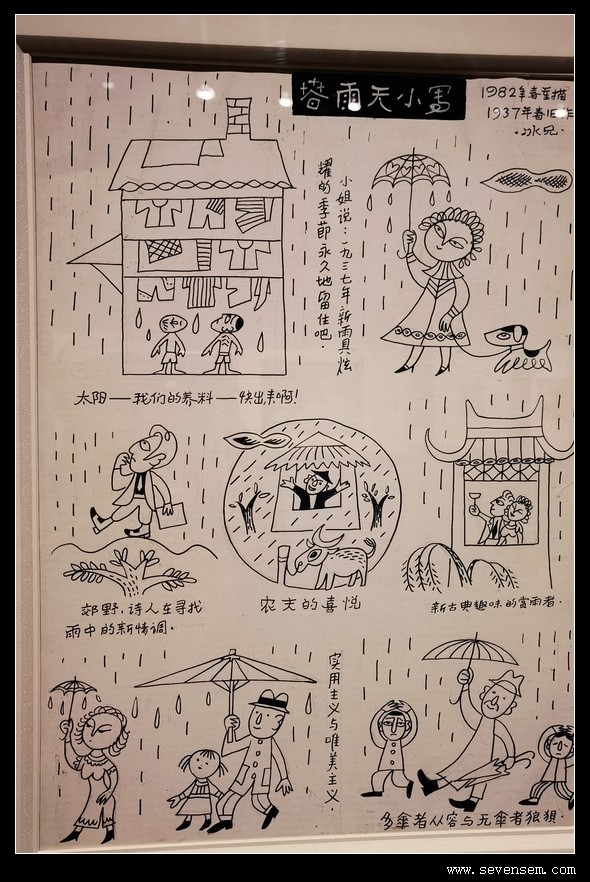 雨天小
1982年春重描
1937年春旧作
·冰兄·
小姐说：一九三七年新雨具炫
耀的季節永久地留住吧．
太阳—我们的养料—快出来啊！
郊野，诗人在寻找
雨中的新情调．
农夫的喜悦
新古典趣味的赏雨者．
实用主义与唯美主义．
多傘者从容与无傘者狼狽．
www.sevensem.com